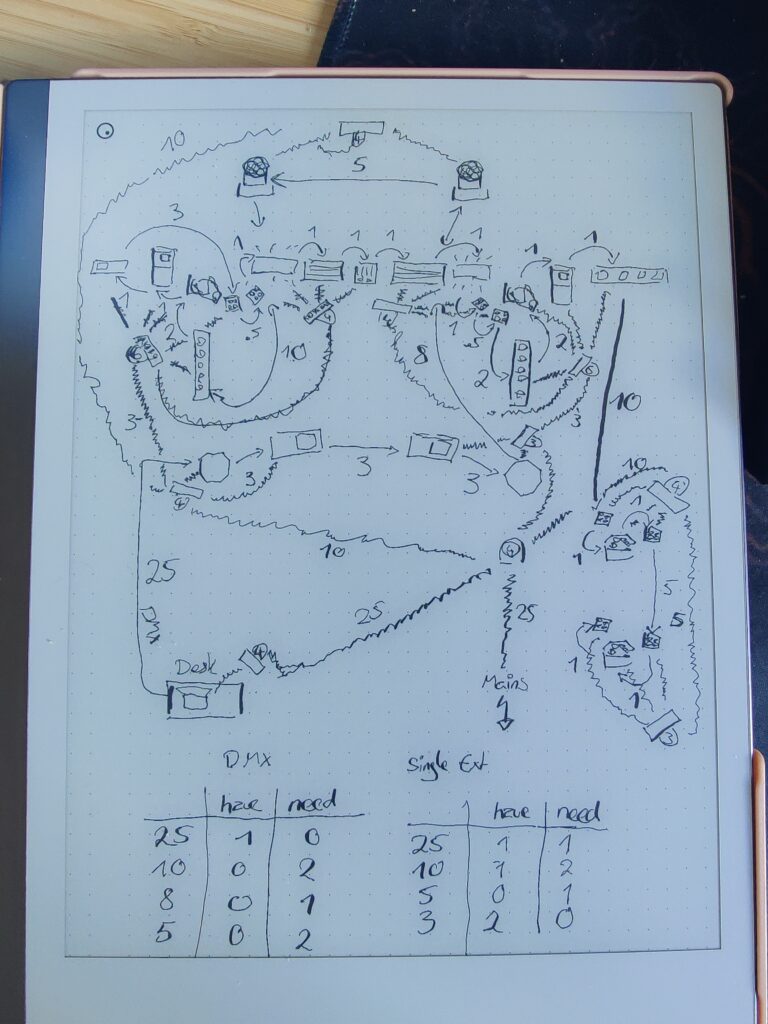 10
4
5
3
1
1
1
1
1
1
1
1
2
.5
10
4
8
1
.5
2
2
6
6
3
3
10
3
3
3
3
4
10
10
4
1
1
25
10
4
25
25
5
5
DMX
1
1
3
Desk
4
Mains
DMX
Single Ext
have need
have need
25 1 0
25 1 1
10 0 2
10 1 2
8 0 1
5 0 1
5 0 2
3 2 0